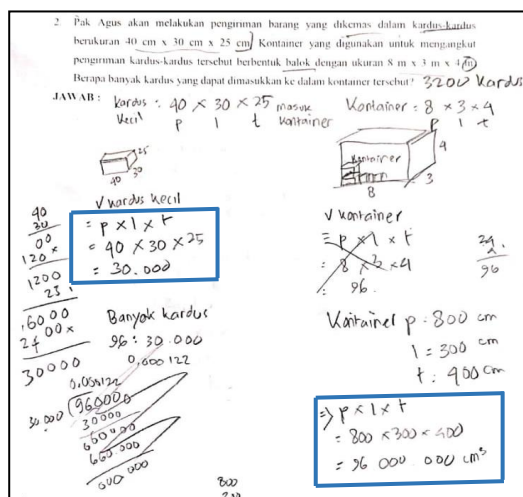 2. Pak Agus akan melakukan pengiriman barang yang dikemas dalam kardus-kardus
berukuran 40 cm x 30 cm x 25 cm. Kontainer yang digunakan untuk mengangkut
pengiriman kardus-kardus tersebut berbentuk balok dengan ukuran 8 m x 3 m x 4 m.
Berapa banyak kardus yang dapat dimasukkan ke dalam kontainer tersebut? 3200 kardus
JAWAB :
kardus : 40 × 30 × 25 masuk
kecil p l t kontainer
Kontainer = 8 × 3 × 4
p l t
25
30
40
Kontainer
4
3
8
V kardus kecil
= p × l × t
= 40 × 30 × 25
= 30.000
40
30
00
120 ×
1200
25
6000
2400×
30000
V kontainer
= p × l × t
= 8 × 3 × 4
= 96.
24
96
Banyak kardus
96 : 30.000
30.000
960000
30000
660000
660.000
600000
Kontainer p = 800 cm
l = 300 cm
t = 400 cm
=> p × l × t
= 800 × 300 × 400
= 96 000 000 cm³
800